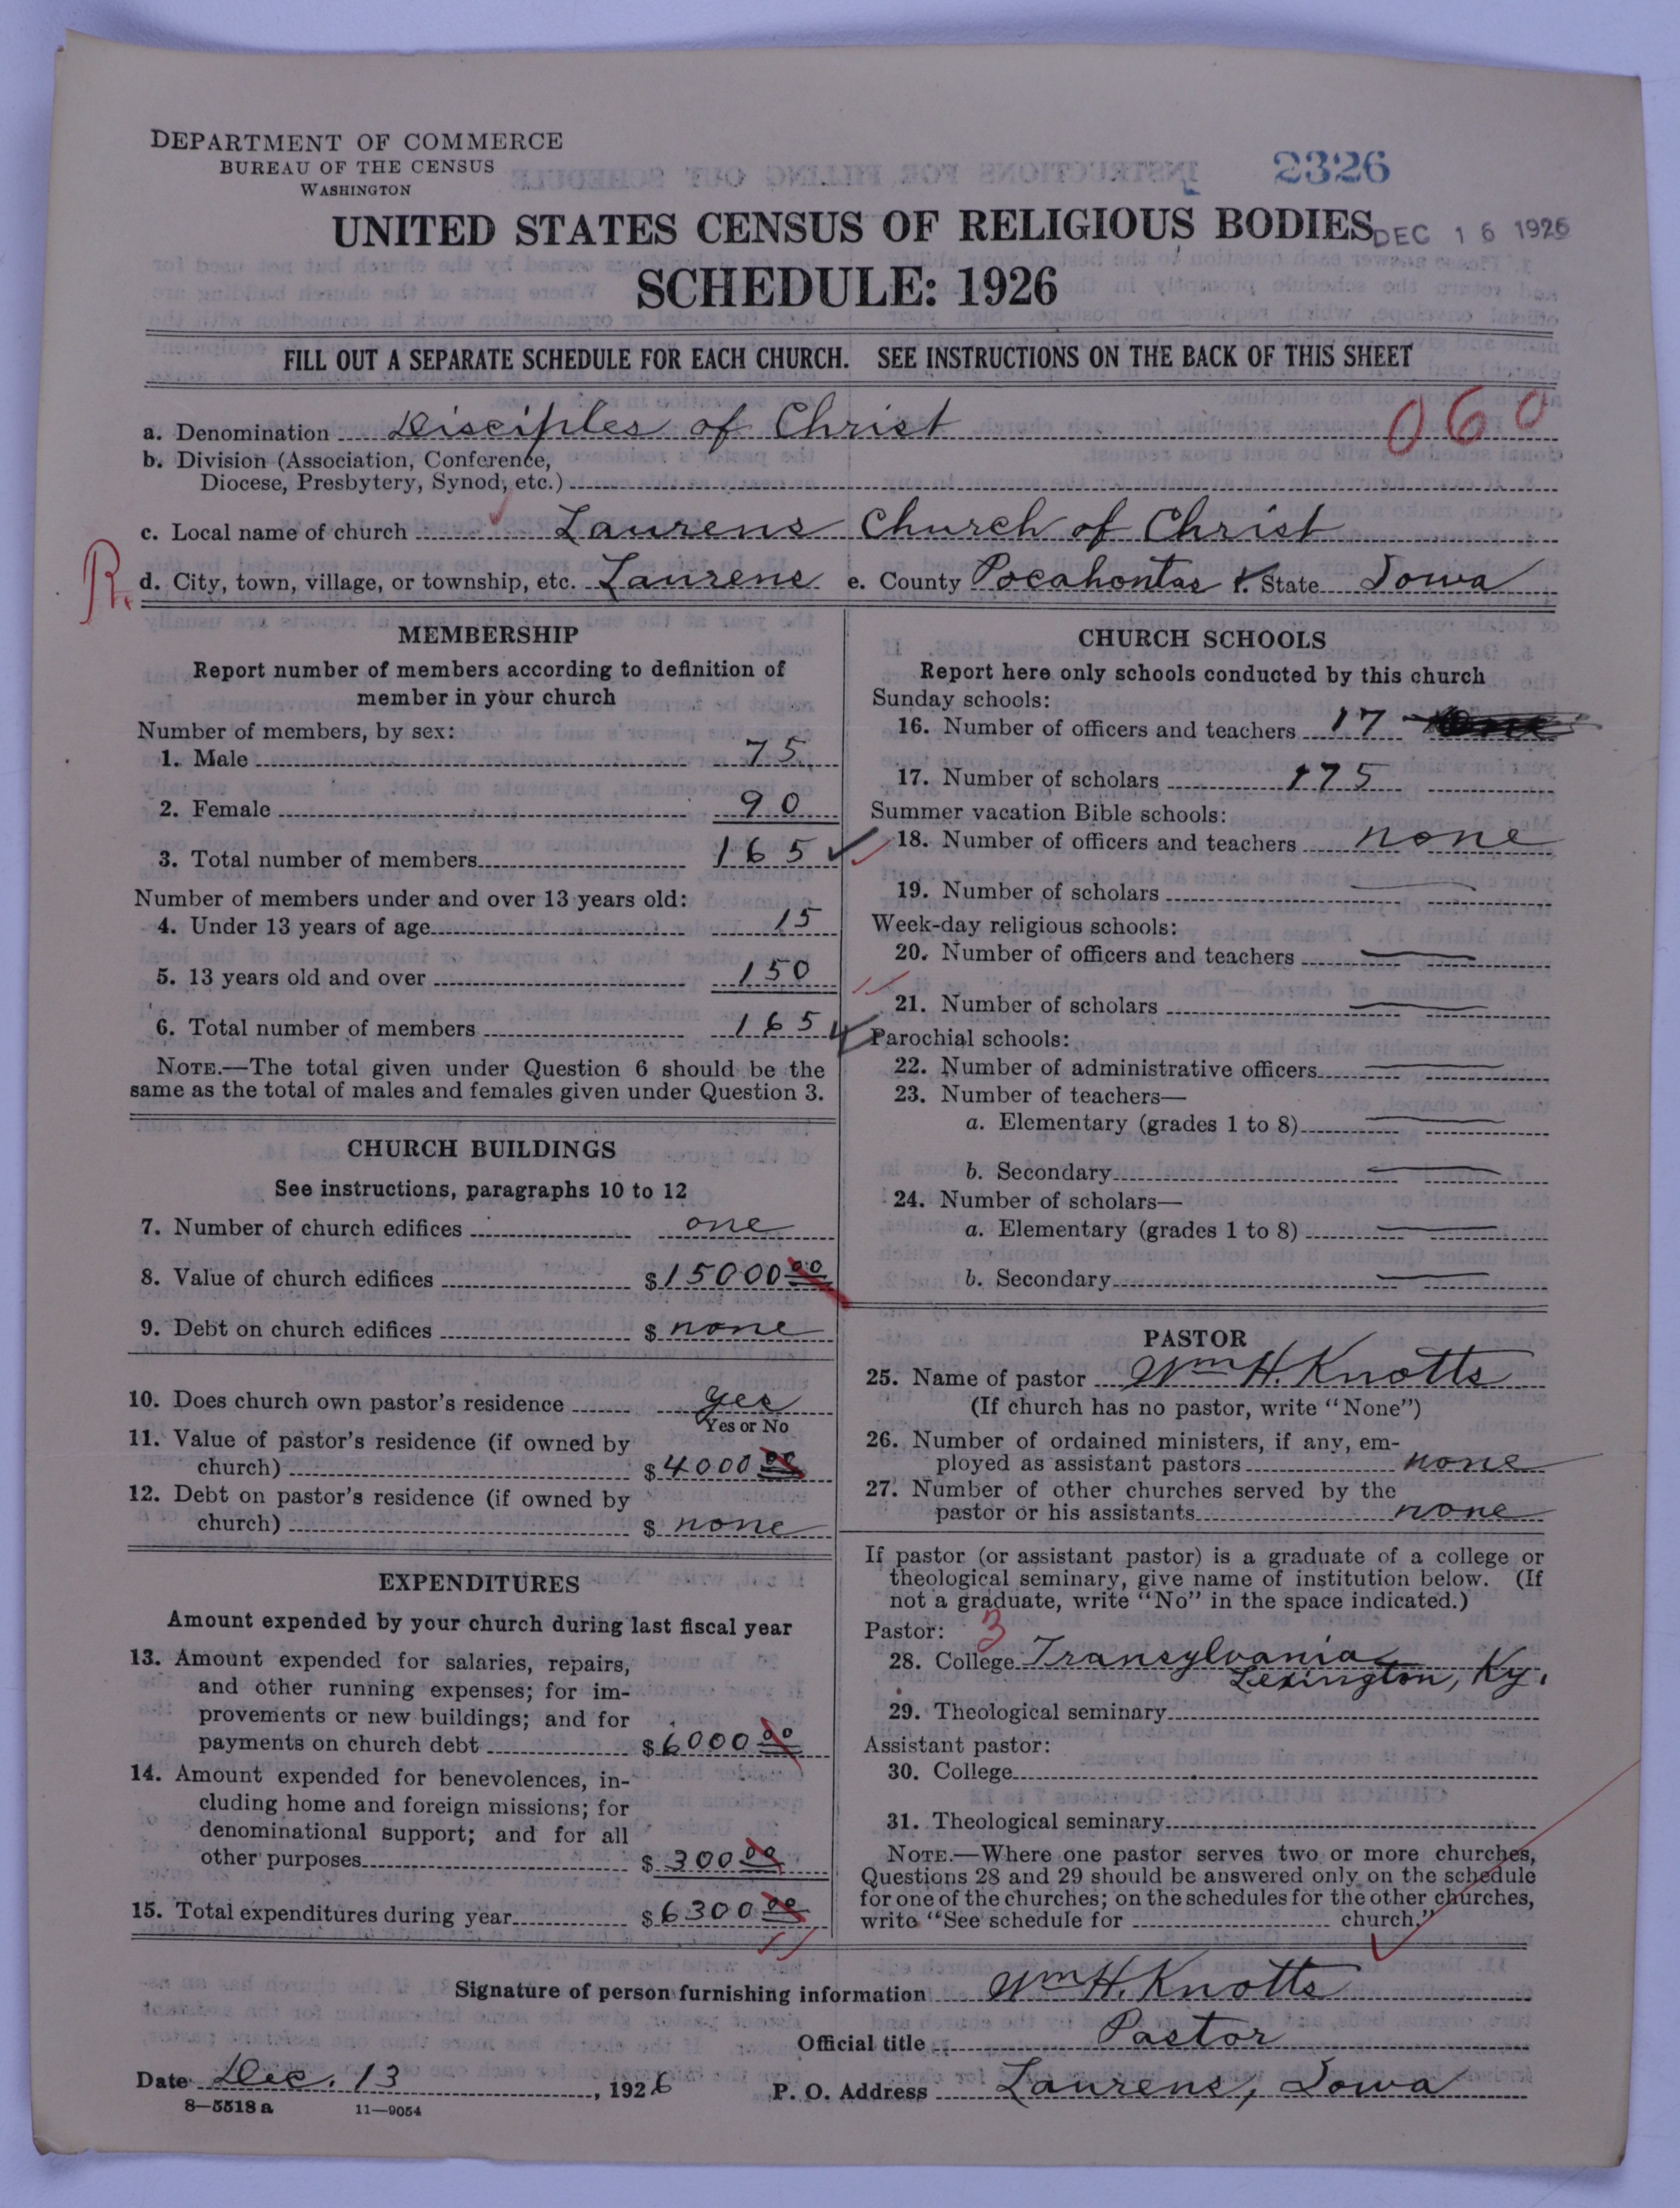 DEPARTMENT OF COMMERCE
BUREAU OF THE CENSUS
WASHINGTON
2326
UNITED STATES CENSUS OF RELIGIOUS BODIES
DEC 16 1926
SCHEDULE: 1926
FILL OUT A SEPARATE SCHEDULE FOR EACH CHURCH. SEE INSTRUCTIONS ON THE BACK OF THIS SHEET
060
a. Denomination Disciples of Christ
b. Division (Association, Conference,
Diocese, Presbytery, Synod, etc.)
c. Local name of church Laurens Church of Christ
R.
d. City, town, village, or township, etc. Laurens e. County Pocahontas f. State Iowa
MEMBERSHIP
Report number of members according to definition of
member in your church
Number of members, by sex:
1. Male 75
2. Female 90
3. Total number of members 165
Number of members under and over 13 years old:
4. Under 13 years of age 15
5. 13 years old and over 150
6. Total number of members 165
NOTE.—The total given under Question 6 should be the
same as the total of males and females given under Question 3.
CHURCH BUILDINGS
See instructions, paragraphs 10 to 12
7. Number of church edifices one
8. Value of church edifices $15000 00
9. Debt on church edifices $ none
10. Does church own pastor's residence yes
Yes or No
11. Value of pastor's residence (if owned by
church) $4000 00
12. Debt on pastor's residence (if owned by
church) $ none
EXPENDITURES
Amount expended by your church during last fiscal year
13. Amount expended for salaries, repairs,
and other running expenses; for im-
provements or new buildings; and for
payments on church debt $6000 00
14. Amount expended for benevolences, in-
cluding home and foreign missions; for
denominational support; and for all
other purposes $ 300 00
15. Total expenditures during year $6300 00
CHURCH SCHOOLS
Report here only schools conducted by this church
Sunday schools:
16. Number of officers and teachers 17
17. Number of scholars 175
Summer vacation Bible schools:
18. Number of officers and teachers none
19. Number of scholars
Week-day religious schools:
20. Number of officers and teachers
21. Number of scholars
Parochial schools:
22. Number of administrative officers
23. Number of teachers—
a. Elementary (grades 1 to 8)
b. Secondary
24. Number of scholars—
a. Elementary (grades 1 to 8)
b. Secondary
PASTOR
25. Name of pastor Wm H. Knotts
(If church has no pastor, write "None")
26. Number of ordained ministers, if any, em-
ployed as assistant pastors none
27. Number of other churches served by the
pastor or his assistants none
If pastor (or assistant pastor) is a graduate of a college or
theological seminary, give name of institution below. (If
not a graduate, write "No" in the space indicated.)
Pastor: 3
28. College Transylvania
Lexington, Ky.
29. Theological seminary
Assistant pastor:
30. College
31. Theological seminary
NOTE.—Where one pastor serves two or more churches,
Questions 28 and 29 should be answered only on the schedule
for one of the churches; on the schedules for the other churches,
write "See schedule for church."
Signature of person furnishing information Wm H. Knotts
Official title Pastor
Date Dec. 13, 1926 P. O. Address Laurens, Iowa
8—5518 a 11—9054